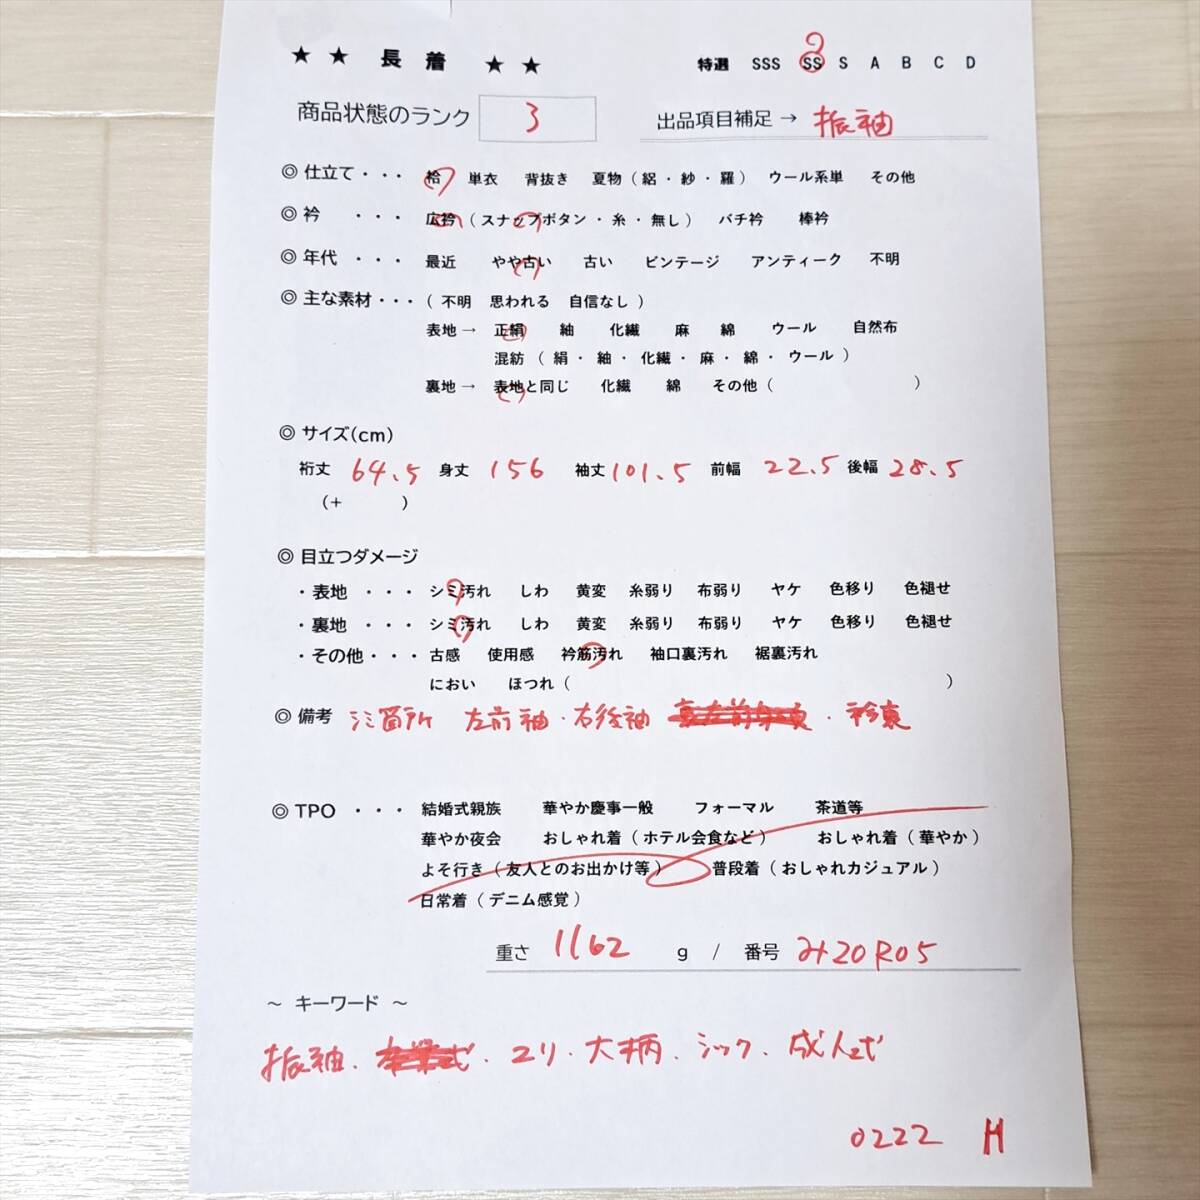 ★ ★ 長 着 ★ ★ 特選 SSS SS S A B C D
商品状態のランク 3 出品項目補足 → 振袖
◎ 仕立て ・・・ 袷 単衣 背抜き 夏物 ( 絽 ・ 紗 ・ 羅 ) ウール系単 その他
◎ 衿 ・・・ 広衿 ( スナップボタン ・ 糸 ・ 無し ) バチ衿 棒衿
◎ 年代 ・・・ 最近 やや古い 古い ビンテージ アンティーク 不明
◎ 主な素材 ・・・ ( 不明 思われる 自信なし )
表地 → 正絹 紬 化繊 麻 綿 ウール 自然布
混紡 ( 絹 ・ 紬 ・ 化繊 ・ 麻 ・ 綿 ・ ウール )
裏地 → 表地と同じ 化繊 綿 その他 ( )
◎ サイズ(cm)
裄丈 64.5 身丈 156 袖丈 101.5 前幅 22.5 後幅 28.5
(+ )
◎ 目立つダメージ
・表地 ・・・ シミ汚れ しわ 黄変 糸弱り 布弱り ヤケ 色移り 色褪せ
・裏地 ・・・ シミ汚れ しわ 黄変 糸弱り 布弱り ヤケ 色移り 色褪せ
・その他 ・・・ 古感 使用感 衿筋汚れ 袖口裏汚れ 裾裏汚れ
におい ほつれ ( )
◎ 備考 シミ箇所 左前袖・右後袖 ・衿裏
◎ TPO ・・・ 結婚式親族 華やか慶事一般 フォーマル 茶道等
華やか夜会 おしゃれ着 ( ホテル会食など ) おしゃれ着 ( 華やか )
よそ行き ( 友人とのお出かけ等 ) 普段着 ( おしゃれカジュアル )
日常着 ( デニム感覚 )
重さ 1162 g / 番号 み20R05
~ キーワード ~
振袖・ ・ユリ・大柄・シック・成人式
0222 H